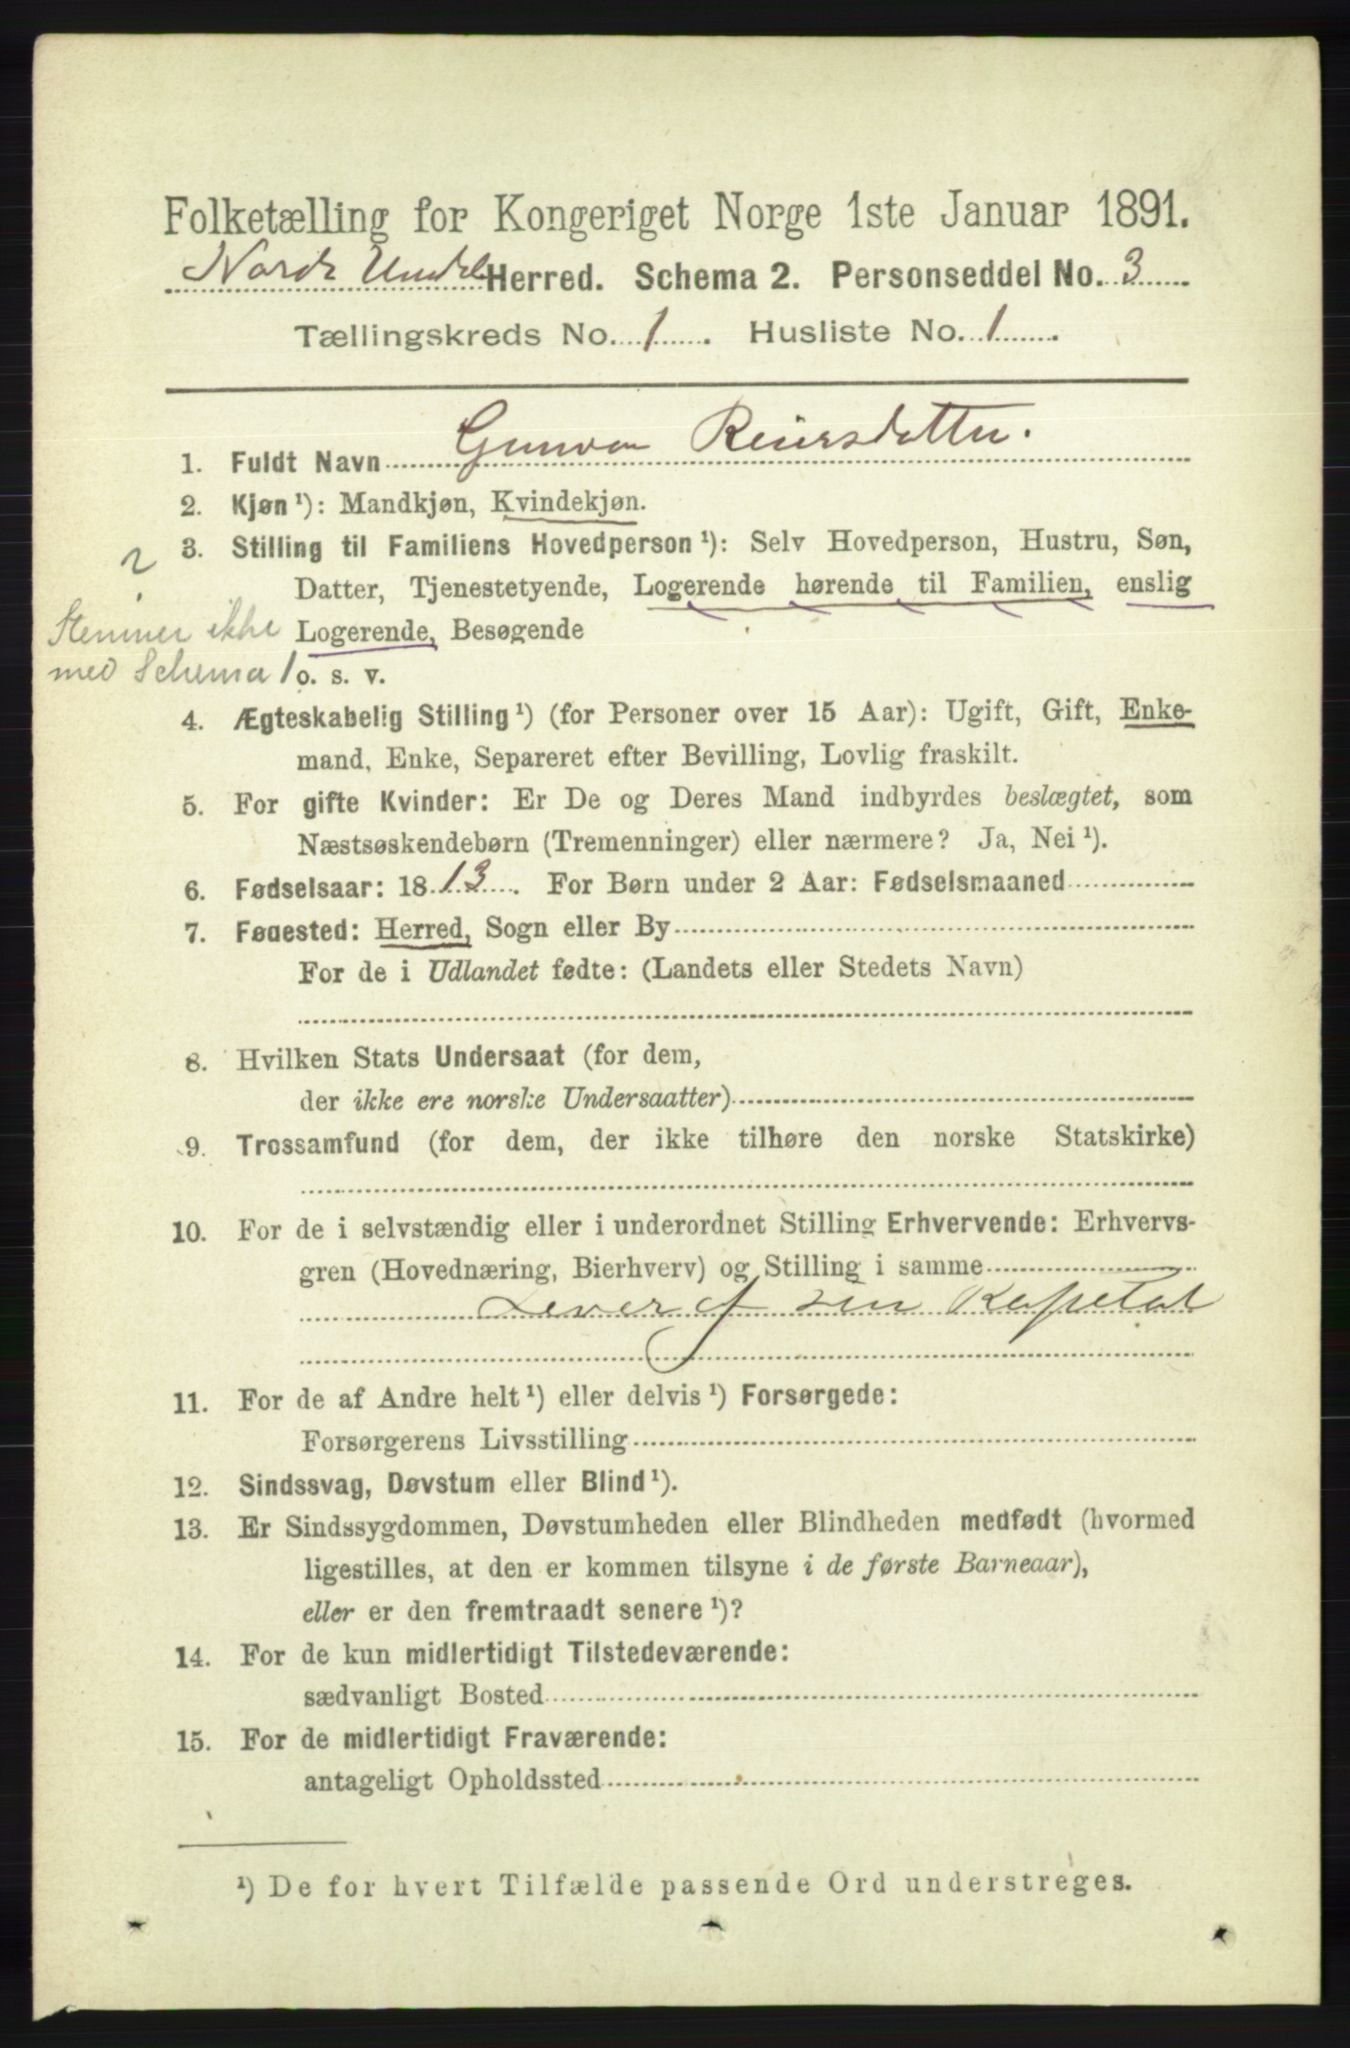 Folketælling for Kongeriget Norge 1ste Januar 1891.
Nordr Undal Herred. Schema 2. Personseddel No. 3
Tællingskreds No. 1. Husliste No. 1.
1. Fuldt Navn Gunvor Reiersdatter.
2. Kjøn ¹): Mandkjøn, Kvindekjøn.
3. Stilling til Familiens Hovedperson ¹): Selv Hovedperson, Hustru, Søn,
2
Datter, Tjenestetyende, Logerende hørende til Familien, enslig
Stemmer ikke
Logerende, Besøgende
med Schema 1
o. s. v.
4. Ægteskabelig Stilling ¹) (for Personer over 15 Aar): Ugift, Gift, Enke-
mand, Enke, Separeret efter Bevilling, Lovlig fraskilt.
5. For gifte Kvinder: Er De og Deres Mand indbyrdes beslægtet, som
Næstsøskendebørn (Tremenninger) eller nærmere? Ja, Nei ¹).
6. Fødselsaar: 1813. For Børn under 2 Aar: Fødselsmaaned
7. Føuested: Herred, Sogn eller By
For de i Udlandet fødte: (Landets eller Stedets Navn)
8. Hvilken Stats Undersaat (for dem,
der ikke ere norske Undersaatter)
9. Trossamfund (for dem, der ikke tilhøre den norske Statskirke)
10. For de i selvstændig eller i underordnet Stilling Erhvervende: Erhvervs-
gren (Hovednæring, Bierhverv) og Stilling i samme
Lever af sin Kapetal
11. For de af Andre helt ¹) eller delvis ¹) Forsørgede:
Forsørgerens Livsstilling
12. Sindssvag, Døvstum eller Blind ¹).
13. Er Sindssygdommen, Døvstumheden eller Blindheden medfødt (hvormed
ligestilles, at den er kommen tilsyne i de første Barneaar),
eller er den fremtraadt senere ¹)?
14. For de kun midlertidigt Tilstedeværende:
sædvanligt Bosted
15. For de midlertidigt Fraværende:
antageligt Opholdssted
¹) De for hvert Tilfælde passende Ord understreges.